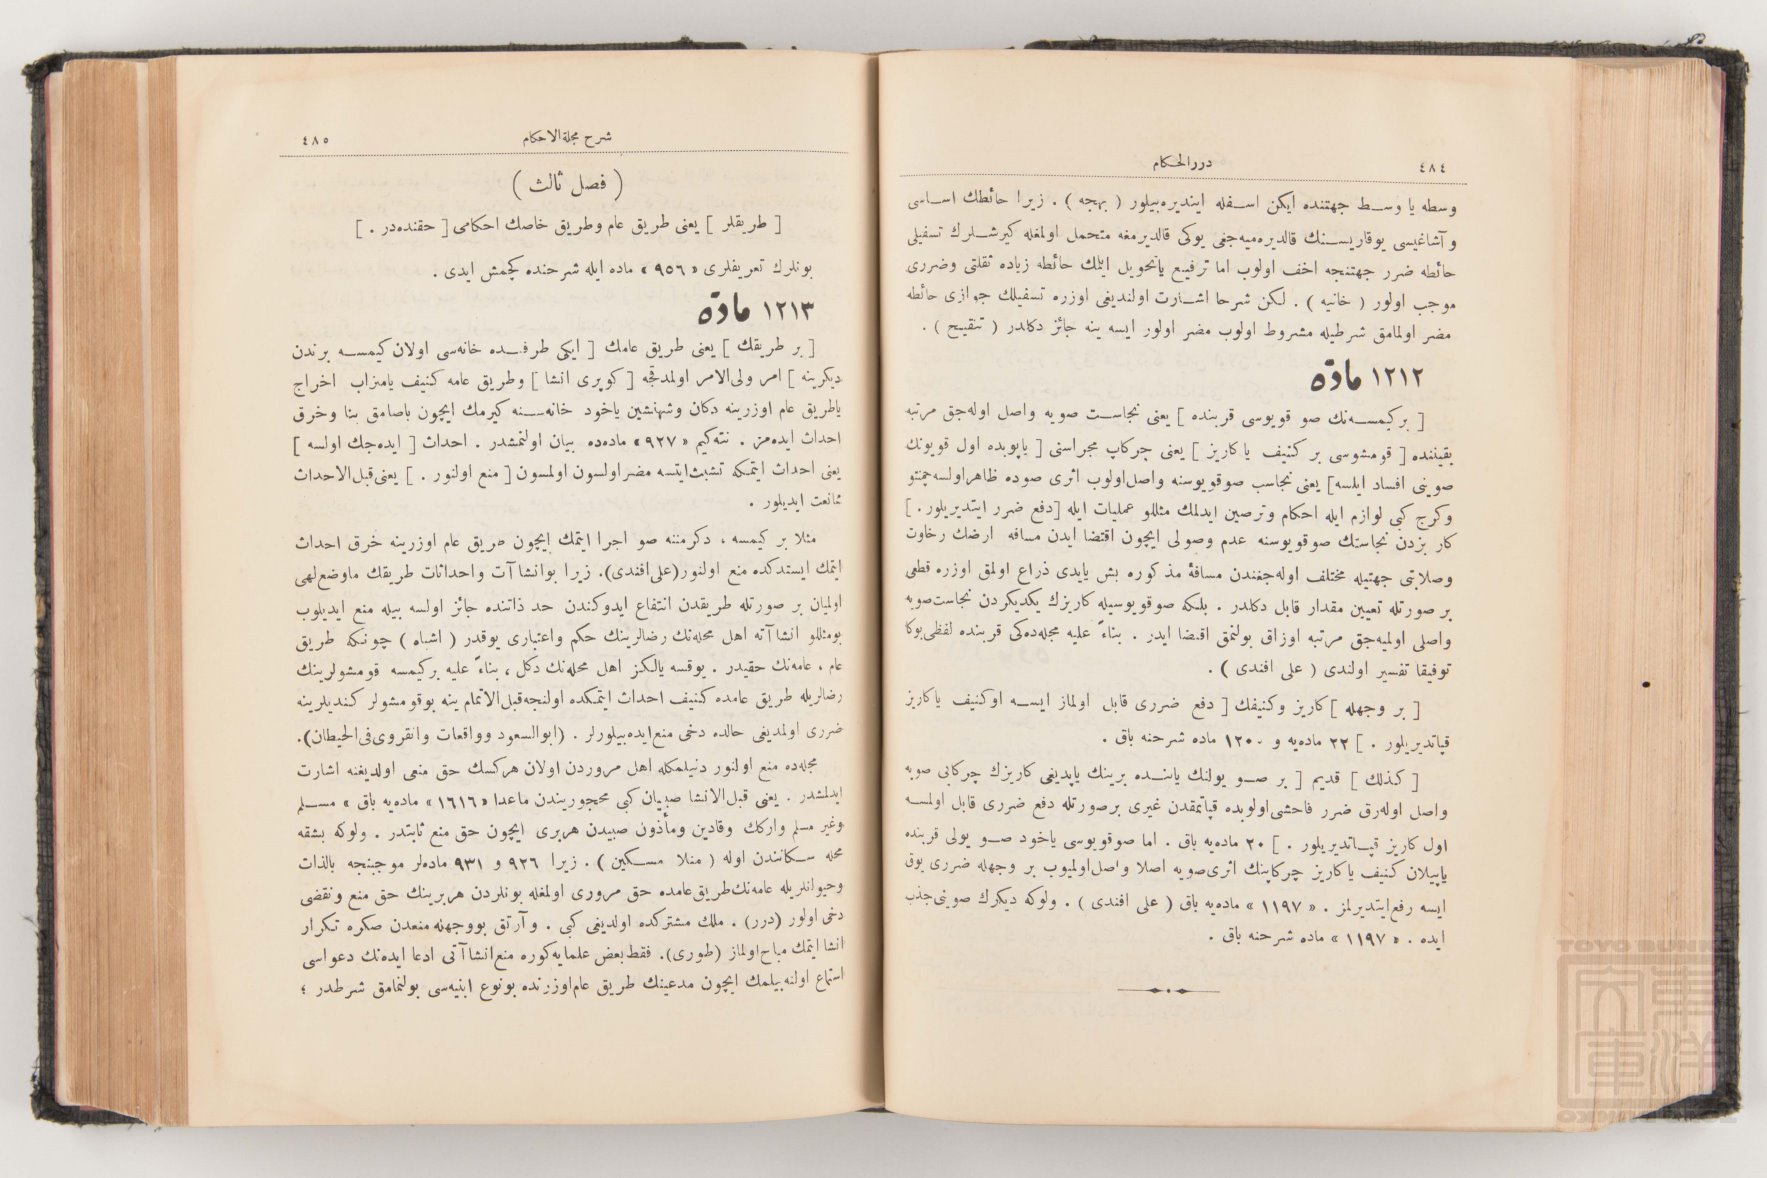 ٤٨٤
دررالحكام
وسطه يا وسط جهتنده ايكن اسفله اينديره‌بيلور ( بهجه ) . زيرا حائطك اساسى
و آشاغيسى يوقاريسنك قالديره‌ميه‌جغى يوكى قالديرمغه متحمل اولمغله كيرشلرك تسفيلى
حائطه ضرر جهتنجه اخف اولوب اما ترفيع ياتحويل ايتمك حائطه زياده ثقلتى وضررى
موجب اولور ( خانيه ) . لكن شرحا اشارت اولنديغى اوزره تسفيلك جوازى حائطه
مضر اولمامق شرطيله مشروط اولوب مضر اولور ايسه ينه جائز دكلدر ( تنقيح ) .
١٢١٢ مادّه
[ بركيمسه‌نك صو قويوسى قربنده ] يعنى نجاست صويه واصل اوله‌جق مرتبه
يقيننده [ قومشوسى بر كنيف ياكاريز ] يعنى چركاپ مجراسى [ ياپوبده اول قويونك
صوينى افساد ايلسه] يعنى نجاسب صوقويوسنه واصل‌اولوب اثرى صوده ظاهراولسه‌چمنتو
وكرج كبى لوازم ايله احكام وترصين ايدلمك مثللو عمليات ايله [دفع ضرر ايتديريلور. ]
كار يزدن نجاستك صوقويوسنه عدم وصولى ايچون اقتضا ايدن مسافه ارضك رخاوت
وصلابتى جهتيله مختلف اوله‌جغندن مسافهٔ مذكوره بش يايدى ذراع اولمق اوزره قطعى
بر صورتله تعيين مقدار قابل دكلدر . بلكه صوقويوسيله كاريزك يكديكردن نجاست‌صويه
واصلى اولميه‌جق مرتبه اوزاق بولنمق اقتضا ايدر . بناءً عليه مجله‌ده‌كى قربنده لفظى‌بوكا
توفيقا تفسير اولندى ( على افندى ) .
[ بر وجهله ] كاريز وكنيفك [ دفع ضررى قابل اولماز ايسه اوكنيف ياكاريز
قپاتديريلور . ] ٢٢ ماده‌يه و ١٢٠٠ ماده شرحنه باق .
[ كذلك ] قديم [ بر صو يولنك ياننده برينك ياپديغى كاريزك چركابى صويه
واصل اوله‌رق ضرر فاحشى‌اولوبده قپاتمقدن غيرى برصورتله دفع ضررى قابل اولمسه
اول كاريز قپاتديريلور . ] ٢٠ ماده‌يه باق . اما صوقويوسى ياخود صو يولى قربنده
ياپيلان كنيف ياكاريز چركاپنك اثرى‌صويه اصلا واصل‌اولميوب بر وجهله ضررى يوق
ايسه رفع‌ايتديرلمز . « ١١٩٧ » ماده‌يه باق ( على افندى ) . ولوكه ديكرك صوينى‌جذب
ايده . « ١١٩٧ » ماده شرحنه باق .
شرح مجلةالاحكام
٤٨٥
( فصل ثالث )
[ طريقلر ] يعنى طريق عام وطريق خاصك احكامى [ حقنده‌در . ]
بونلرك تعريفلرى « ٩٥٦ » ماده ايله شرحنده كچمش ايدى .
١٢١٣ مادّه
[ بر طريقك ] يعنى طريق عامك [ ايكى طرفنده خانه‌سى اولان كيمسه برندن
ديكرينه ] امر ولى‌الامر اولمدقجه [ كوپرى انشا ] وطريق عامه كنيف ياميزاب اخراج
ياطريق عام اوزرينه دكان وشهنشين ياخود خانه‌سنه كيرمك ايچون باصامق بنا وخرق
احداث ايده‌مز . نته‌كيم « ٩٢٧ » ماده‌ده بيان اولنمشدر . احداث [ ايده‌جك اولسه ]
يعنى احداث ايتمكه تشبث‌ايتسه مضراولسون اولمسون [ منع اولنور . ] يعنى‌قبل‌الاحداث
ممانعت ايديلور .
مثلا بر كيمسه ، دكرمننه صو اجرا ايتمك ايچون طريق عام اوزرينه خرق احداث
ايتمك ايستدكده منع اولنور(على‌افندى). زيرا بوانشاآت واحداثات طريقك ماوضع‌لهى
اولميان بر صورتله طريقدن انتفاع ايدوكندن حد ذاتنده جائز اولسه بيله منع ايديلوب
بومثللو انشاآته اهل محله‌نك رضالرينك حكم واعتبارى يوقدر ( اشباه ) چونكه طريق
عام ، عامه‌نك حقيدر . يوقسه يالكز اهل محله‌نك دكل ، بناءً عليه بركيمسه قومشولرينك
رضالريله طريق عامده كنيف احداث ايتمكده اولنجه‌قبل‌الاتمام ينه بوقومشولر كنديلرينه
ضررى اولمديغى حالده دخى منع‌ايده‌بيلورلر . (ابوالسعود وواقعات وانقروى‌فى‌الحيطان).
مجله‌ده منع اولنور دنيلمكله اهل مروردن اولان هركسك حق منعى اولديغنه اشارت
ايدلمشدر . يعنى قبل‌الانشا صبيان كبى محجوريندن ماعدا « ١٦١٦ » ماده‌يه باق » مسلم
وغير مسلم واركك وقادين ومأذون صبيدن هربرى ايچون حق منع ثابتدر . ولوكه بشقه
محله سكانندن اوله ( منلا مسكين ) . زيرا ٩٢٦ و ٩٣١ ماده‌لر موجبنجه بالذات
وحيوانلريله عامه‌نك‌طريق‌عامده حق مرورى اولمغله بونلردن هربرينك حق منع ونقضى
دخى اولور (درر) . ملك مشتركده اولديغى كبى . وآرتق بووجهله منعدن صكره تكرار
انشا ايتمك مباح‌اولماز (طورى). فقط‌بعض علمايه‌كوره منع‌انشاآتى ادعا ايده‌نك دعواسى
استماع اولنه‌بيلمك ايچون مدعينك طريق عام‌اوزرنده بونوع ابنيه‌سى بولنمامق شرطدر ؛
TOYO BUNKO